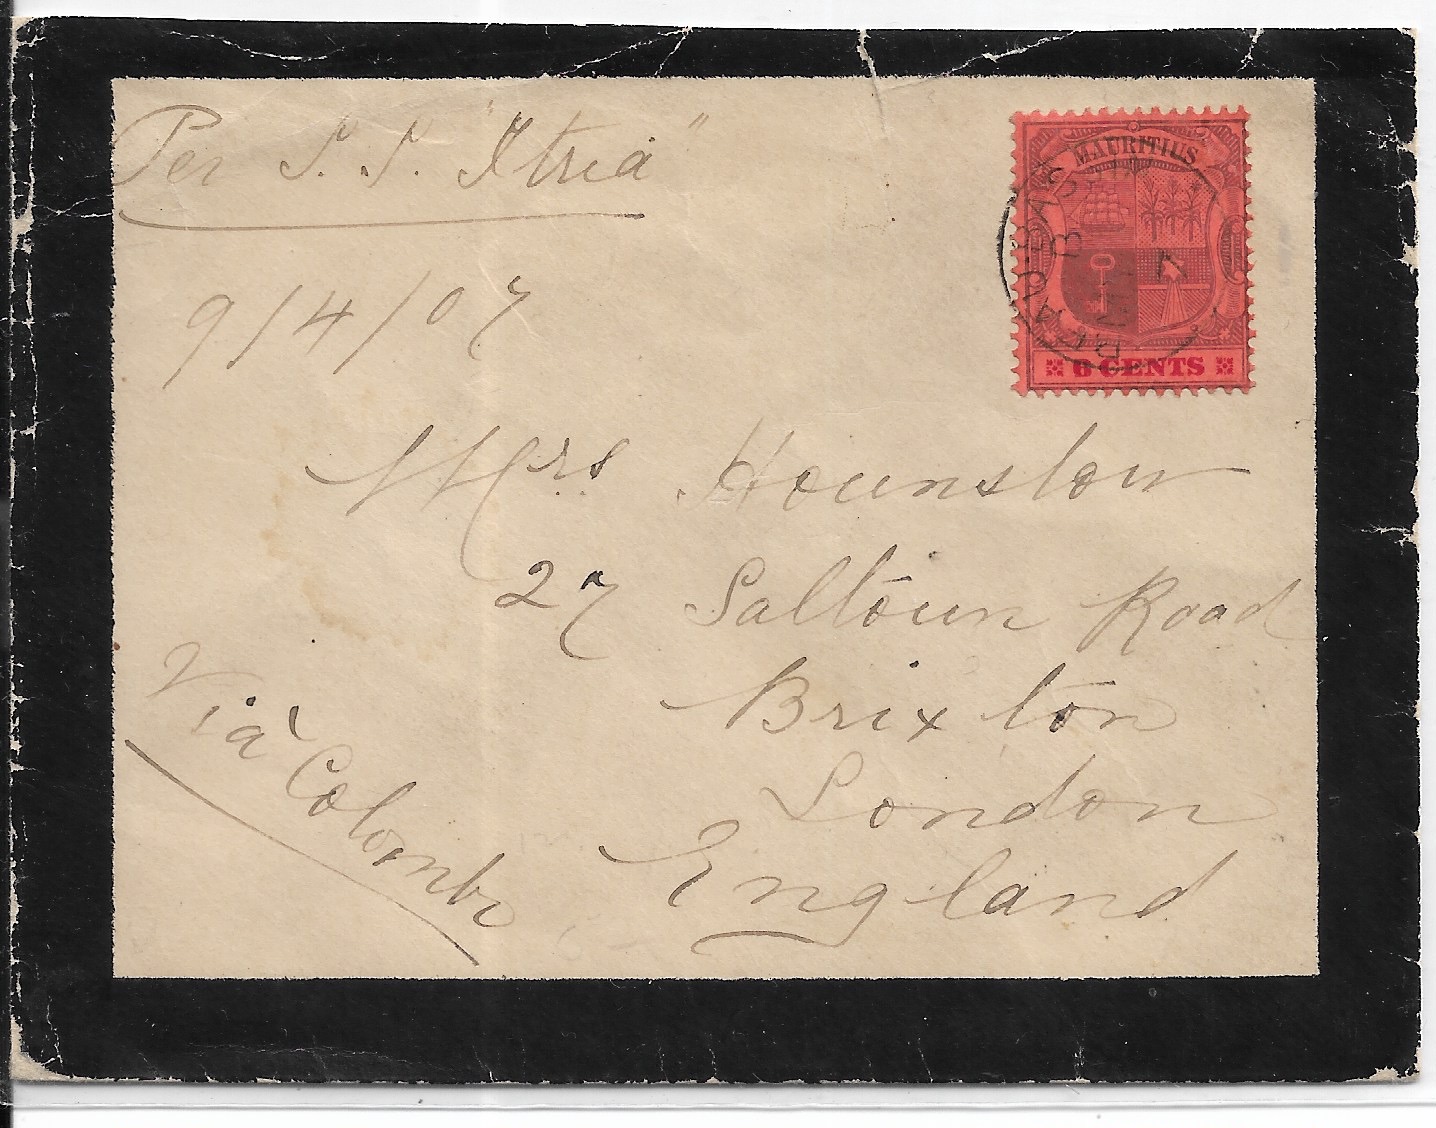 Per S.S. "Itria"
MAURITIUS
BEAU-BASSIN
B
6 CENTS
9/4/07
Mrs Hounslow
27 Saltoun Road
Brixton
London
England
Vià Colombo